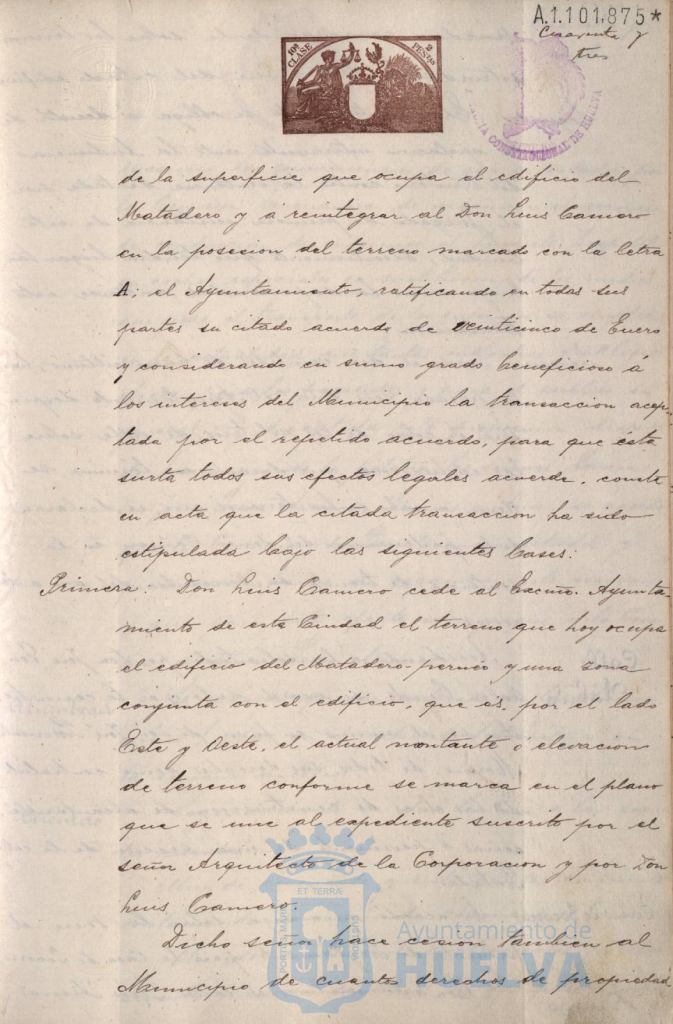 A.1.101,875*
Cuarenta y
tres
10ª CLASE
2 PESETAS
CONSTITUCIONAL DE HUELVA
de la superficie que ocupa el edificio del
Matadero y á reintegrar al Don Luis Camero
en la posesion del terreno marcado con la letra
A; el Ayuntamiento, ratificando en todas sus
partes su citado acuerdo de veinticinco de Enero
y considerando en sumo grado beneficioso á
los intereses del Municipio la transaccion acep-
tada por el repetido acuerdo, para que ésta
surta todos sus efectos legales acuerda, conste
en acta que la citada transaccion ha sido
estipulada bajo las siguientes bases:
Primera: Don Luis Camero cede al Excmo. Ayunta-
miento de esta Ciudad el terreno que hoy ocupa
el edificio del Matadero-perneo y una zona
conjunta con el edificio, que es, por el lado
Este y Oeste, el actual montante ó elevacion
de terreno conforme se marca en el plano
que se une al expediente suscrito por el
señor Arquitecto de la Corporacion y por Don
Luis Camero.
Dicho señor hace cesion tambien al
Municipio de cuantos derechos de propiedad
ET TERRÆ
PORTUS MARIS
Ayuntamiento de
HUELVA